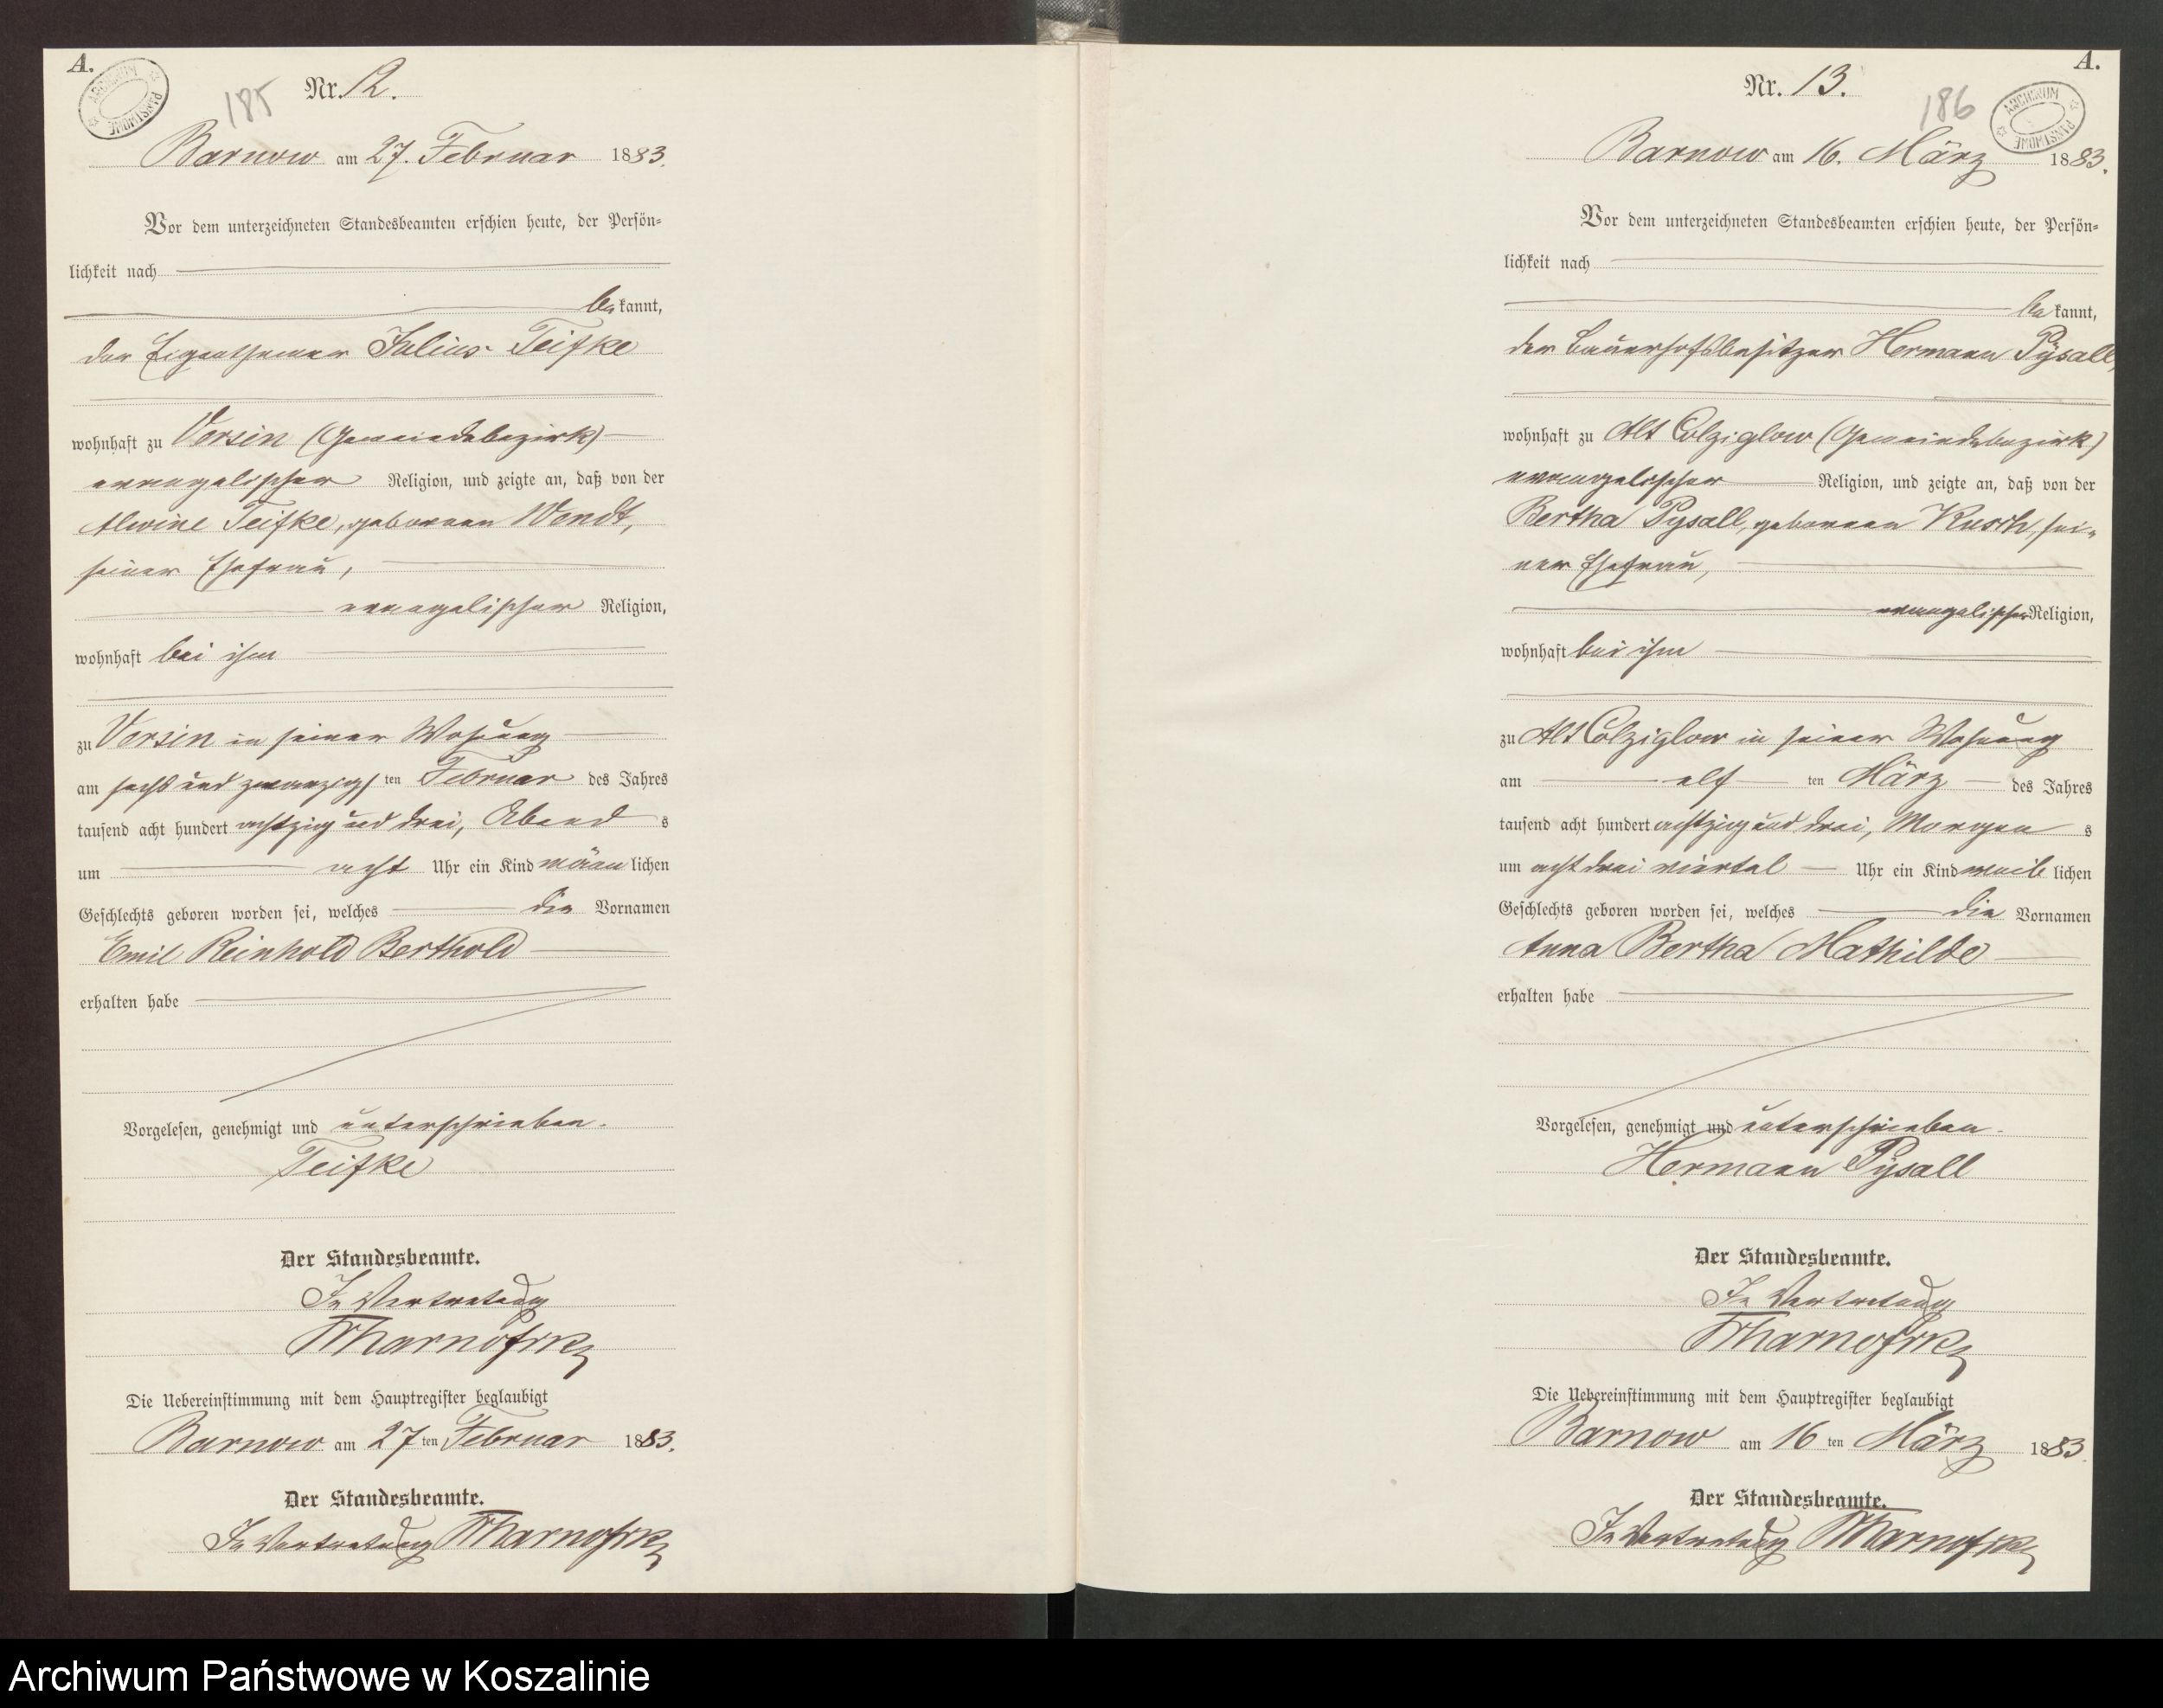 A.
ARCHIWUM PAŃSTWOWE
185
Nr. 12.
Barnow am 27. Februar 1883.
Vor dem unterzeichneten Standesbeamten erschien heute, der Persön=
lichkeit nach
be kannt,
der Eigenthümer Julius Teifke
wohnhaft zu Versin (Gemeindebezirk)
evangelischer Religion, und zeigte an, daß von der
Alwine Teifke, geborenen Wendt,
seiner Ehefrau,
evangelischer Religion,
wohnhaft bei ihm
zu Versin in seiner Wohnung
am sechs und zwanzigs ten Februar des Jahres
tausend acht hundert achtzig und drei, Abend s
um acht Uhr ein Kind männ lichen
Geschlechts geboren worden sei, welches die Vornamen
Emil Reinhold Berthold
erhalten habe
Vorgelesen, genehmigt und unterschrieben.
Teifke
Der Standesbeamte.
In Vertretung
Die Uebereinstimmung mit dem Hauptregister beglaubigt
Barnow am 27 ten Februar 1883.
Der Standesbeamte.
In Vertretung
A.
ARCHIWUM PAŃSTWOWE
186
Nr. 13.
Barnow am 16. März 1883.
Vor dem unterzeichneten Standesbeamten erschien heute, der Persön=
lichkeit nach
be kannt,
der Bauerhofsbesitzer Hermann Pÿsall,
wohnhaft zu Alt Colziglow (Gemeindebezirk)
evangelischer Religion, und zeigte an, daß von der
Bertha Pysall, geborenen Kusch, sei-
ner Ehefrau,
evangelischer Religion,
wohnhaft bei ihm
zu Alt Colziglow in seiner Wohnung
am elf ten März des Jahres
tausend acht hundert achtzig und drei, Morgen s
um acht drei viertel Uhr ein Kind weib lichen
Geschlechts geboren worden sei, welches die Vornamen
Anna Bertha Mathilde
erhalten habe
Vorgelesen, genehmigt und unterschrieben.
Hermann Pÿsall
Der Standesbeamte.
In Vertretung
Die Uebereinstimmung mit dem Hauptregister beglaubigt
Barnow am 16 ten März 1883.
Der Standesbeamte.
In Vertretung
Archiwum Państwowe w Koszalinie